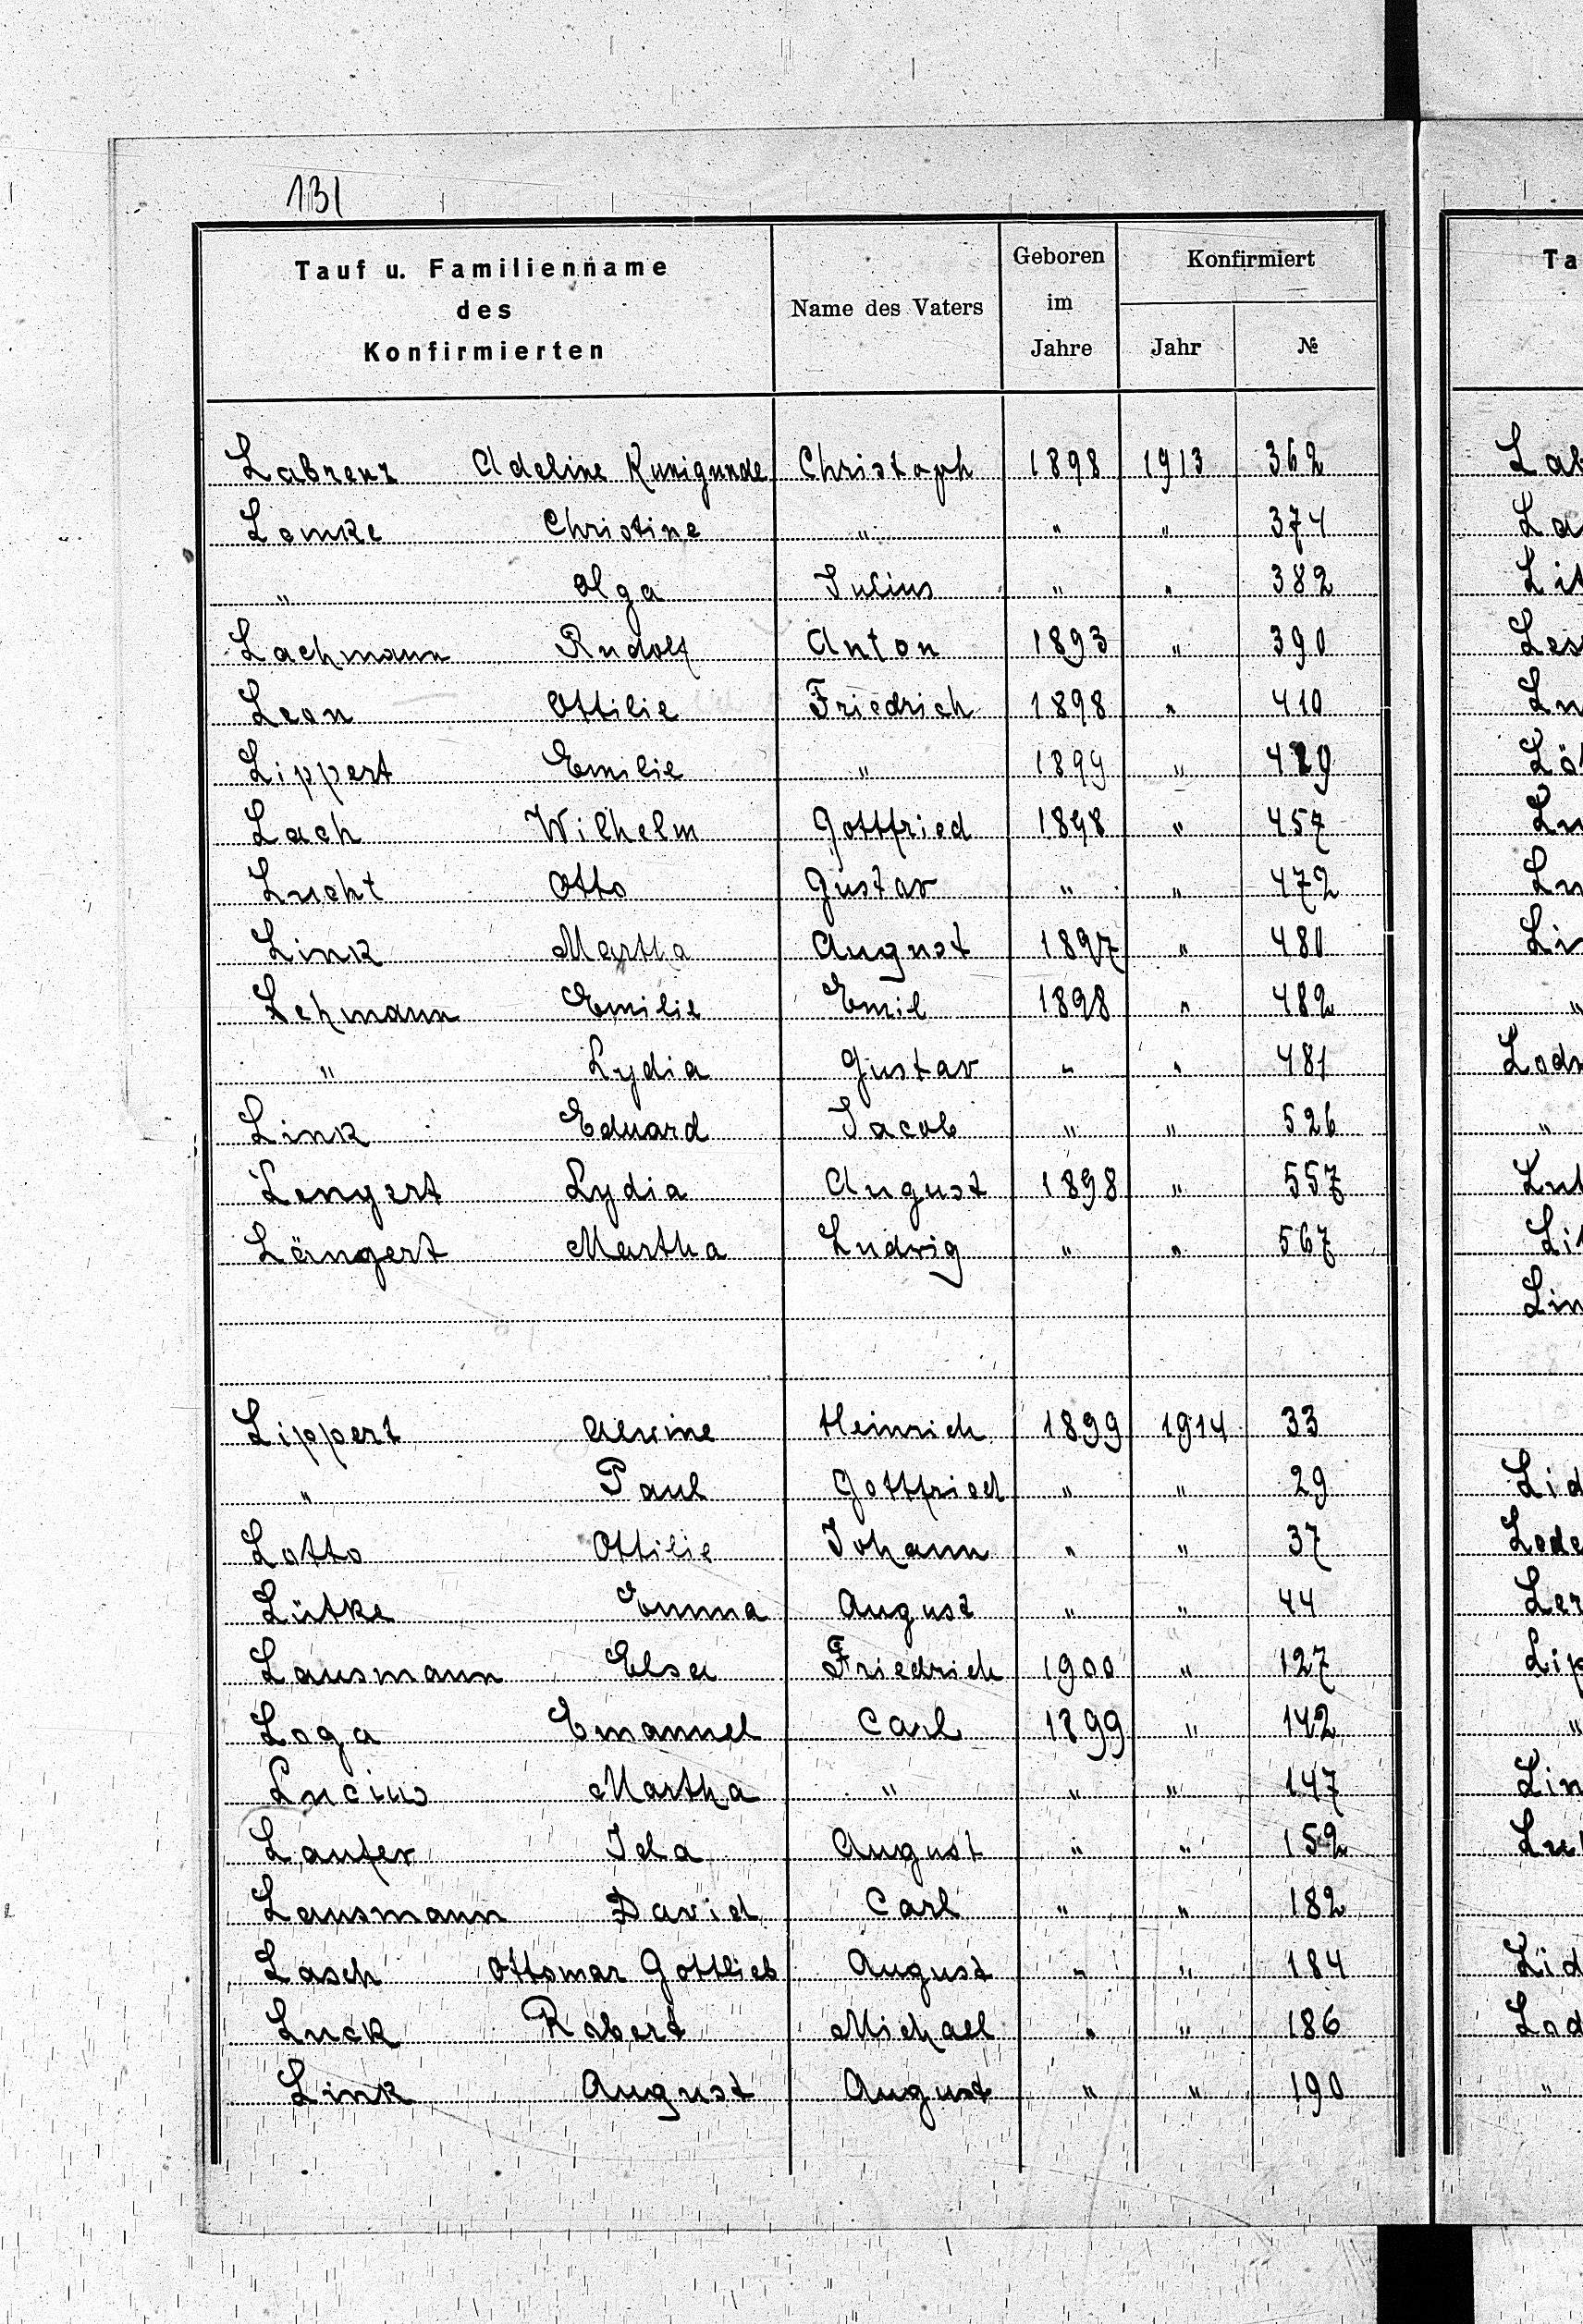 131
Tauf u. Familienname des Konfirmierten | Name des Vaters | Geboren im Jahre | Konfirmiert Jahr | №
Labrenz Adeline Kunigunde Christoph 1898 1913 362
Lemke Christine " " " 374
" Olga Julius " " 382
Lachmann Rudolf Anton 1893 " 390
Leon Ottilie Friedrich 1898 " 410
Lippert Emilie " 1899 " 429
Lach Wilhelm Gottfried 1898 " 457
Lucht Otto Gustav " " 472
Link Martha August 1897 " 480
Lehmann Emilie Emil 1898 " 482
" Lydia Gustav " " 481
Link Eduard Jacob " " 526
Lengert Lydia August 1898 " 557
Längert Martha Ludwig " " 567
Lippert Alwine Heinrich 1899 1914 33
" Paul Gottfried " " 29
Lotto Ottilie Johann " " 37
Lütke Emma August " " 44
Lausmann Elsa Friedrich 1900 " 127
Loga Emanuel Carl 1899 " 142
Lucius Martha " " " 147
Laufer Ida August " " 152
Lausmann David Carl " " 182
Lasch Ottomar Gottlieb August " " 184
Luck Robert Michael " " 186
Link August August " " 190
Ta
Lab
La
Lit
Les
Lu
Lö
Lu
Lu
Li
"
Lod
"
Lut
Lit
Lin
Lid
Lode
Ler
Lip
"
Lin
Lu
Lid
Lod
"